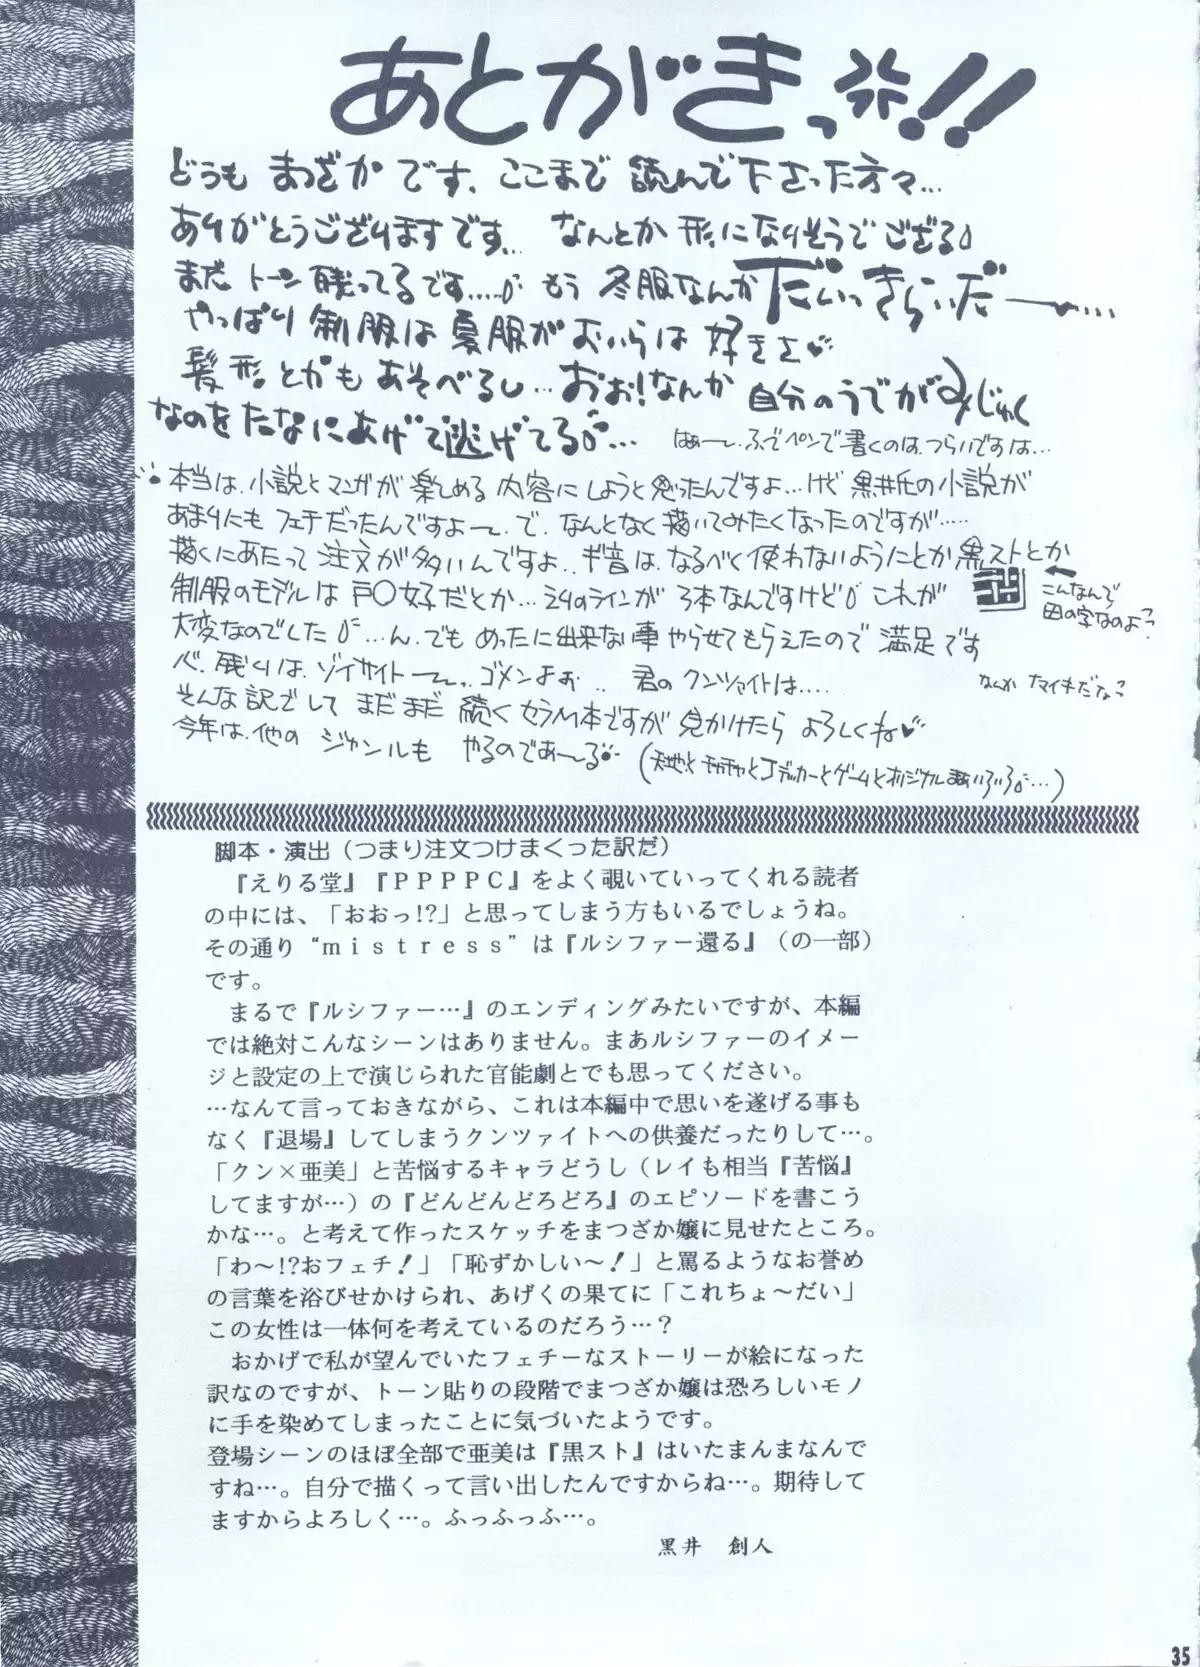 あとがきっ!!
どうも まつざか です. ここまで 読んで下さった方々...
ありがとうございますです... なんとか 形になりそうでござる♪
まだ トーン 残ってるです.....♪ もう 冬服なんか だいっきらいだー....
やっぱり 制服は 夏服が おいらは 好きさ♥
髪形とかも あそべるし...おぉ!なんか 自分のうでがみじゅく
なのをたなにあげて逃げてる♪... はぁ〜.ふでペンで書くのは.つらいですは...
本当は.小説とマンガが楽しめる 内容にしようと思ったんですよ...けど 黒井氏の小説が
あまりにも フェチだったんですよ〜.で.なんとなく描いてみたくなったのですが.....
描くにあたって 注文が多いんですよ..ギ音は.なるべく使わないようにとか 黒ストとか
制服のモデルは 戸〇女子だとか...えりのラインが 3本なんですけど♪ これが
こんなんで
田の字なのよ?
大変なのでした♪...ん.でも めったに出来ない事 やらせてもらえたので 満足です
心.残りは.ゾイサイト〜.. ゴメンよぉ.. 君の クンツァイトは....
なんか ナマイキだな?
そんな訳でして まだまだ 続く セラM本ですが 見かけたら よろしくね♥
今年は.他の ジャンルも やるのであ〜る (天地と チャチャと Jデッカーと ゲームと オリジナル まあいろいろ♪...)
脚本・演出(つまり注文つけまくった訳だ)
『えりる堂』『ＰＰＰＰＣ』をよく覗いていってくれる読者
の中には、「おおっ!?」と思ってしまう方もいるでしょうね。
その通り“ｍｉｓｔｒｅｓｓ”は『ルシファー還る』(の一部)
です。
まるで『ルシファー…』のエンディングみたいですが、本編
では絶対こんなシーンはありません。まあルシファーのイメー
ジと設定の上で演じられた官能劇とでも思ってください。
…なんて言っておきながら、これは本編中で思いを遂げる事も
なく『退場』してしまうクンツァイトへの供養だったりして…。
「クン×亜美」と苦悩するキャラどうし(レイも相当『苦悩』
してますが…)の『どんどんどろどろ』のエピソードを書こう
かな…。と考えて作ったスケッチをまつざか嬢に見せたところ。
「わ〜!?おフェチ！」「恥ずかしい〜！」と罵るようなお誉め
の言葉を浴びせかけられ、あげくの果てに「これちょ〜だい」
この女性は一体何を考えているのだろう…？
おかげで私が望んでいたフェチーなストーリーが絵になった
訳なのですが、トーン貼りの段階でまつざか嬢は恐ろしいモノ
に手を染めてしまったことに気づいたようです。
登場シーンのほぼ全部で亜美は『黒スト』はいたまんまなんで
すね…。自分で描くって言い出したんですからね…。期待して
ますからよろしく…。ふっふっふ…。
黒井　創人
35